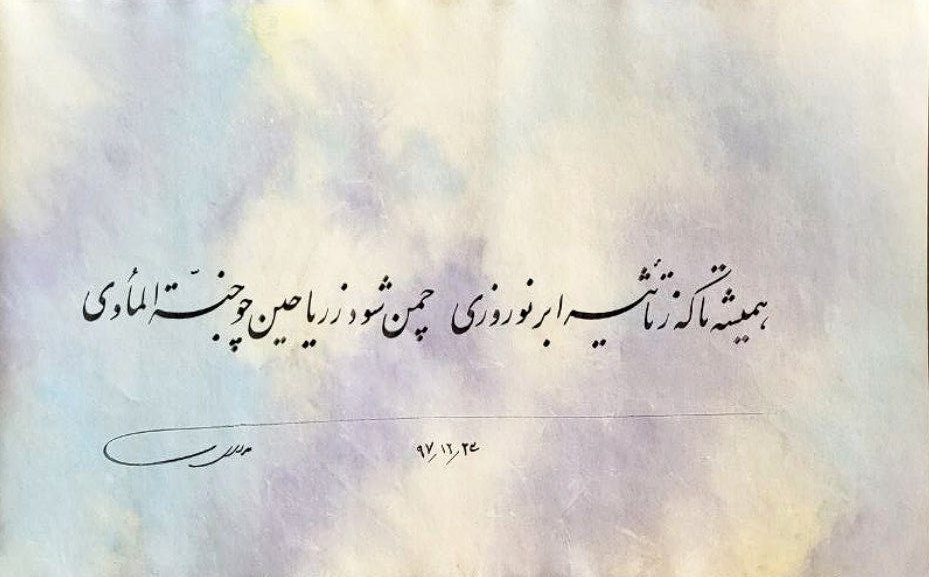 همیشه تا که ز تأثیر ابر نوروزی چمن شود ز ریاحین چو جنّة المأوی
۹۷/۱۲/۲۳